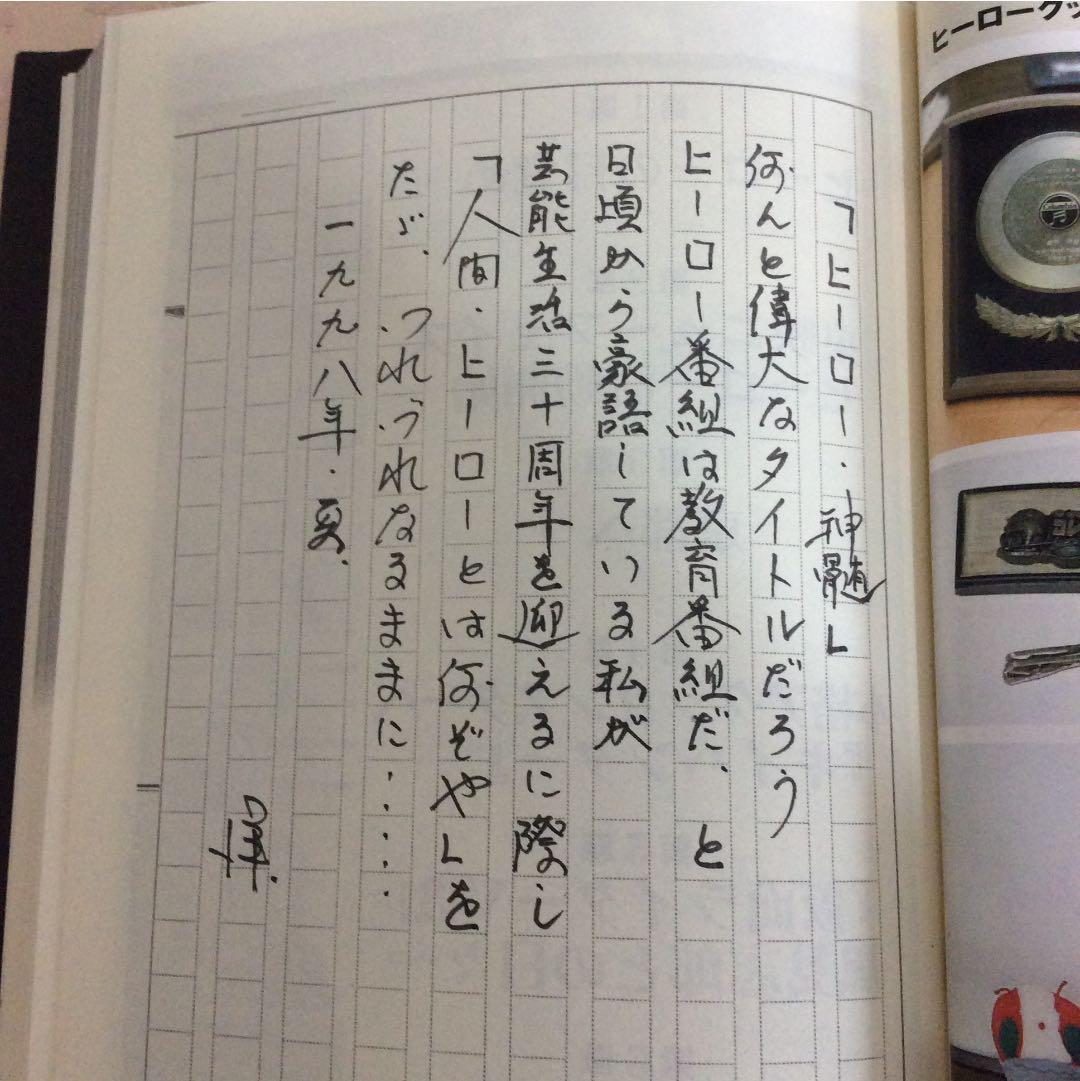 「ヒーロー・神髄」
何んと偉大なタイトルだろう
ヒーロー番組は教育番組だ、と
日頃から豪語している私が
芸能生活三十周年を迎えるに際し
「人間・ヒーローとは何ぞや」を
たゞ、つれづれなるままに・・・・・
一九九八年・夏、
ヒーローグッ